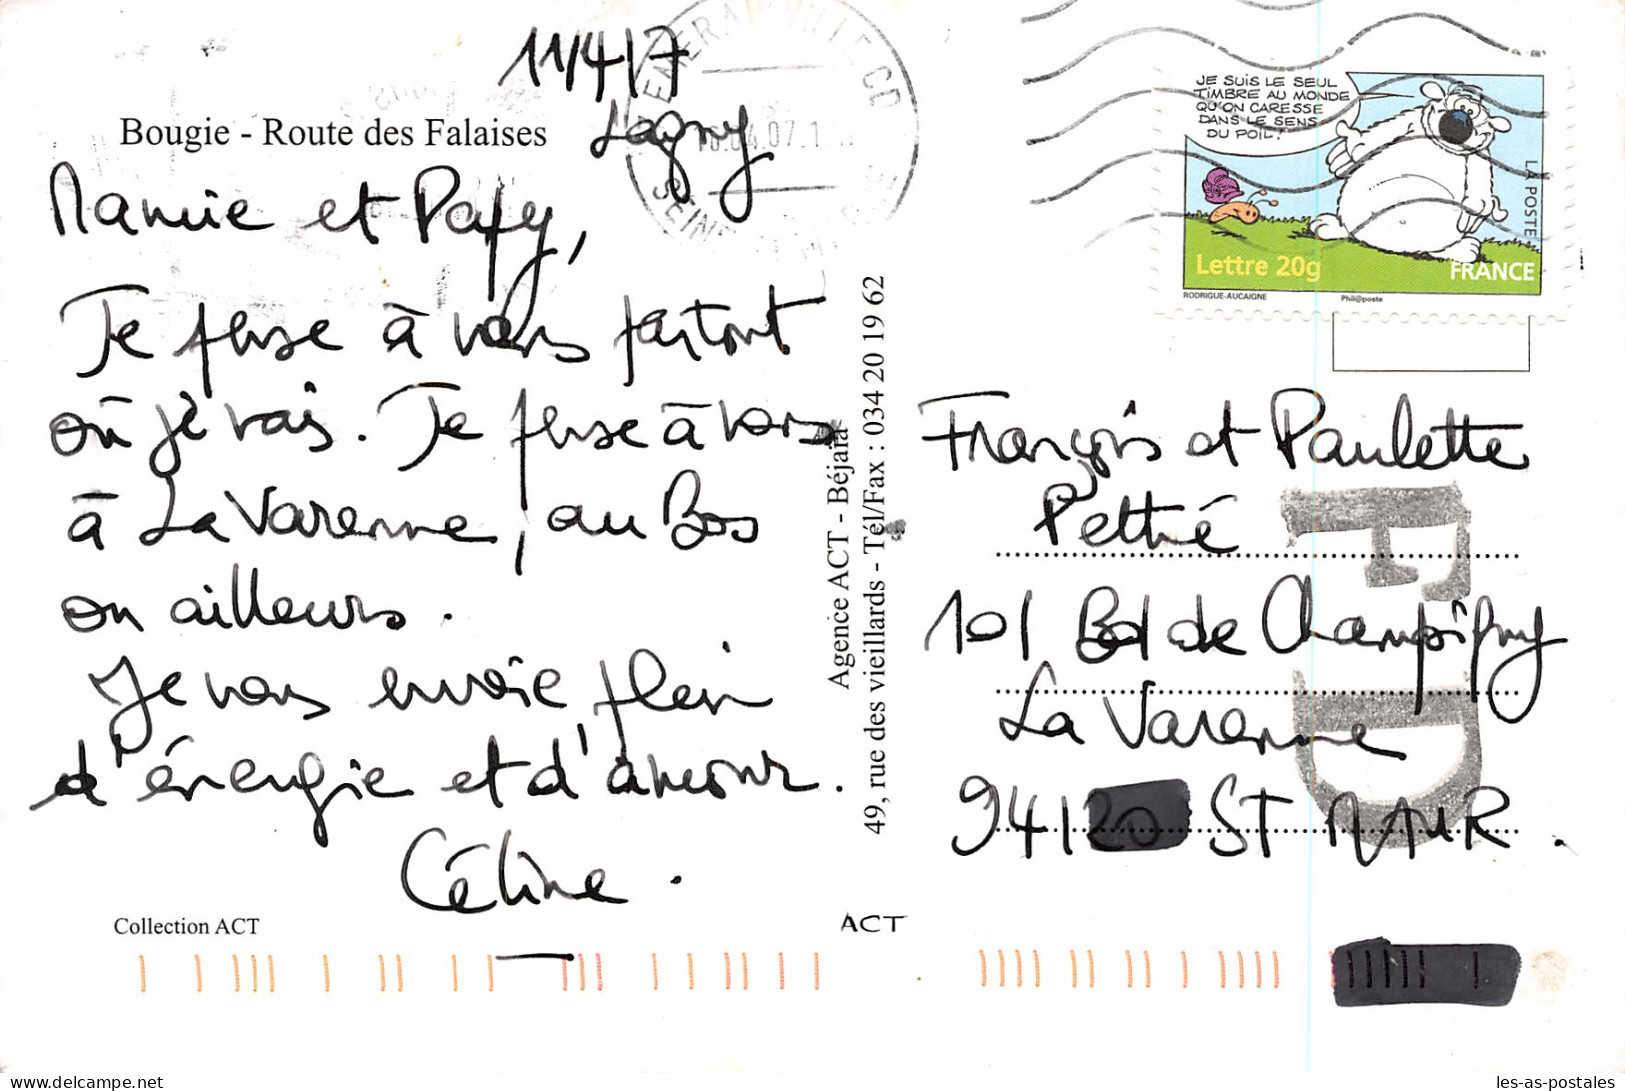 11/4/7
Lagny
Bougie - Route des Falaises
Mamie et Papy,
Je pense à vous partout
où je vais. Je pense à vous
à La Varenne, au Bos
ou ailleurs.
Je vous envoie plein
d'énergie et d'amour.
Céline.
Collection ACT
Agence ACT - Béjaia
49, rue des vieillards - Tél/Fax : 034 20 19 62
ACT
EMERAINVILLE CD
04.07
SEINE
JE SUIS LE SEUL
TIMBRE AU MONDE
QU'ON CARESSE
DANS LE SENS
DU POIL!
LA POSTE
Lettre 20g
FRANCE
RODRIGUE-AUCAIGNE
Phil@poste
François et Paulette
Pethé
101 Bd de Champigny
La Varenne
94120 ST MAUR.
ED
les-as-postales